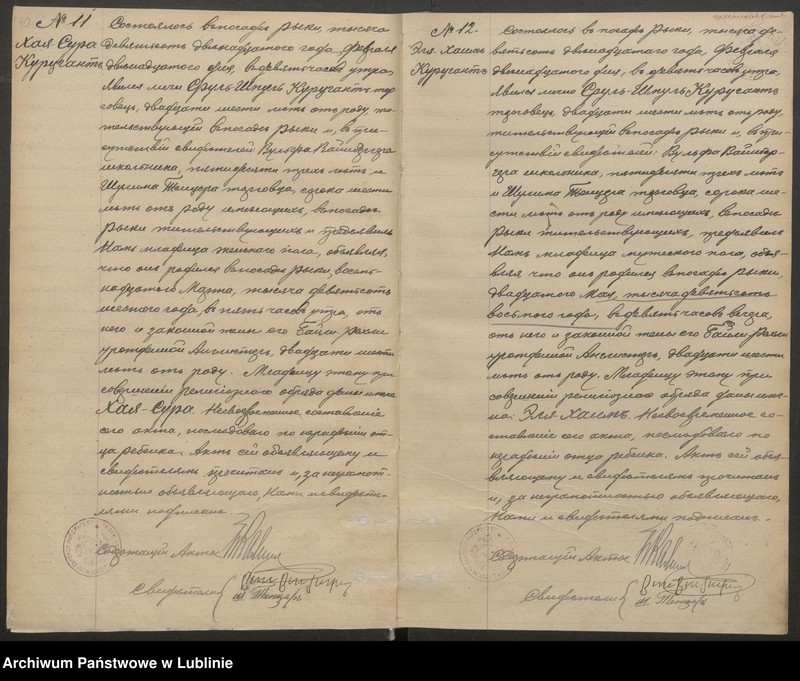 № 11
Хая Сура
Куруганть
Состоялось въ посадѣ Рыки, тысяча
девятьсотъ двѣнадцатого года, Февраля
двѣнадцатого дня, въ девять часовъ утра.
Явился лично Сруль-Шпуль Куругантъ тор-
говецъ, двадцати шести лѣтъ отъ роду, жи-
тельствующій въ посадѣ Рыки и, въ при-
сутствіи свидѣтелей Вульфа
школьника, пятидесяти трехъ лѣтъ и
Шулима Тенцера торговца, сорока шести
лѣтъ отъ роду имѣющихъ, въ посадѣ
Рыки жительствующихъ и предъявилъ
Намъ младенца женскаго пола, объявляя,
что онъ родился въ посадѣ Рыки, восем-
надцатого Марта, тысяча девятьсотъ
шестого года, въ пять часовъ утра, отъ
него и законной жены его Гайли Рохли
урожденной двадцати шести
лѣтъ отъ роду. Младенцу этому при
совершеніи религіознаго обряда дано имя
Хая-Сура. Несвоевременное составленіе
сего акта, послѣдовало по нерадѣнію от-
ца ребенка. Актъ сей объявляющему и
свидѣтелямъ прочитанъ и, за неграмот-
ностью объявляющаго, Нами и свидѣте-
лями подписанъ.
Содержащій Акты
Свидѣтели
Ш. Тенцеръ
№ 12.
Эля Хаимъ
Куругантъ
Состоялось въ посадѣ Рыки, тысяча де-
вятьсотъ двѣнадцатаго года, Февраля
двѣнадцатаго дня, въ девять часовъ утра.
Явился лично Сруль-Шпуль Куругантъ
торговецъ, двадцати шести лѣтъ отъ роду,
жительствующій въ посадѣ Рыки и, въ при-
сутствіи свидѣтелей: Вульфа
школьника, пятидесяти трехъ лѣтъ
и Шулима Тенцера торговца, сорока ше-
сти лѣтъ отъ роду имѣющихъ, въ посадѣ
Рыки жительствующихъ, предъявилъ
Намъ младенца мужескаго пола, объя-
вляя что онъ родился въ посадѣ Рыки,
двадцатого Мая, тысяча девятьсотъ
восьмого года, въ девять часовъ вечера,
отъ него и законной жены его Гайли Рохли
урожденной двадцати шести
лѣтъ отъ роду. Младенцу этому при
совершеніи религіознаго обряда дано им-
я: Эля Хаимъ. Несвоевременное со-
ставленіе сего акта, послѣдовало по
нерадѣнію отца ребенка. Актъ сей объя-
вляющему и свидѣтелямъ прочитанъ
и, за неграмотностью объявляющаго,
Нами и свидѣтелями подписанъ.
Содержащій Акты
Свидѣтели
Ш. Тенцеръ
Archiwum Państwowe w Lublinie